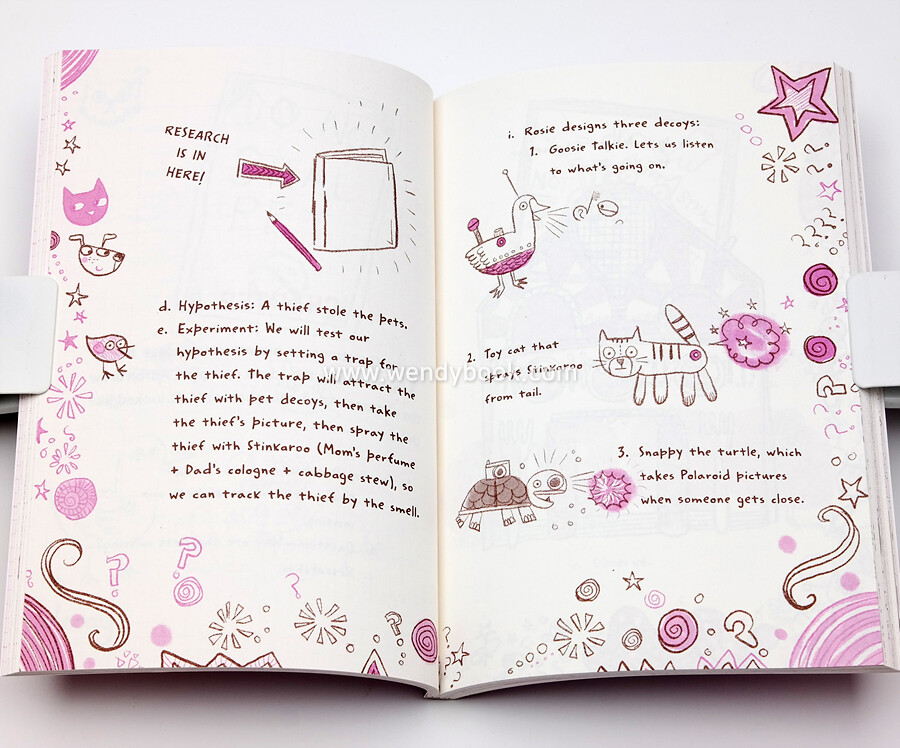 RESEARCH
IS IN
HERE!
d. Hypothesis: A thief stole the pets.
e. Experiment: We will test our
hypothesis by setting a trap for
the thief. The trap will attract the
thief with pet decoys, then take
the thief's picture, then spray the
thief with Stinkaroo (Mom's perfume
+ Dad's cologne + cabbage stew), so
we can track the thief by the smell.
i. Rosie designs three decoys:
1. Goosie Talkie. Lets us listen
to what's going on.
2. Toy cat that
sprays Stinkaroo
from tail.
3. Snappy the turtle, which
takes Polaroid pictures
when someone gets close.
www.wendybook.com